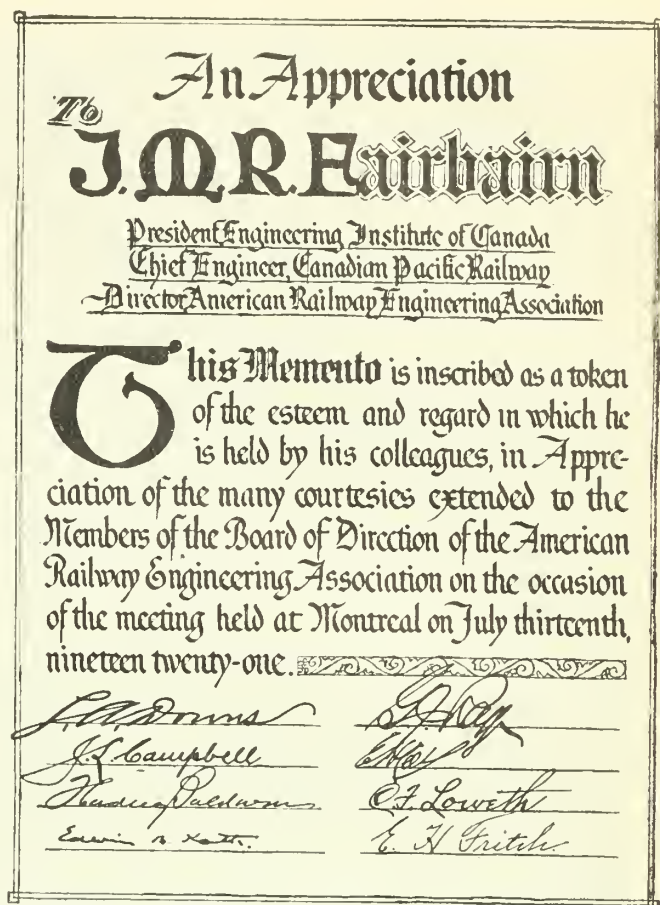 An Appreciation
To
J.M.R.Fairbairn
President Engineering Institute of Canada
Chief Engineer, Canadian Pacific Railway
Director, American Railway Engineering Association
This Memento is inscribed as a token
of the esteem and regard in which he
is held by his colleagues, in Appre-
ciation of the many courtesies extended to the
Members of the Board of Direction of the American
Railway Engineering Association on the occasion
of the meeting held at Montreal on July thirteenth,
nineteen twenty-one.
L.A. Downs
G.J. Ray
J.L. Campbell
Baldwin
C.F. Loweth
Edwin B. Katte
E. H Fritch